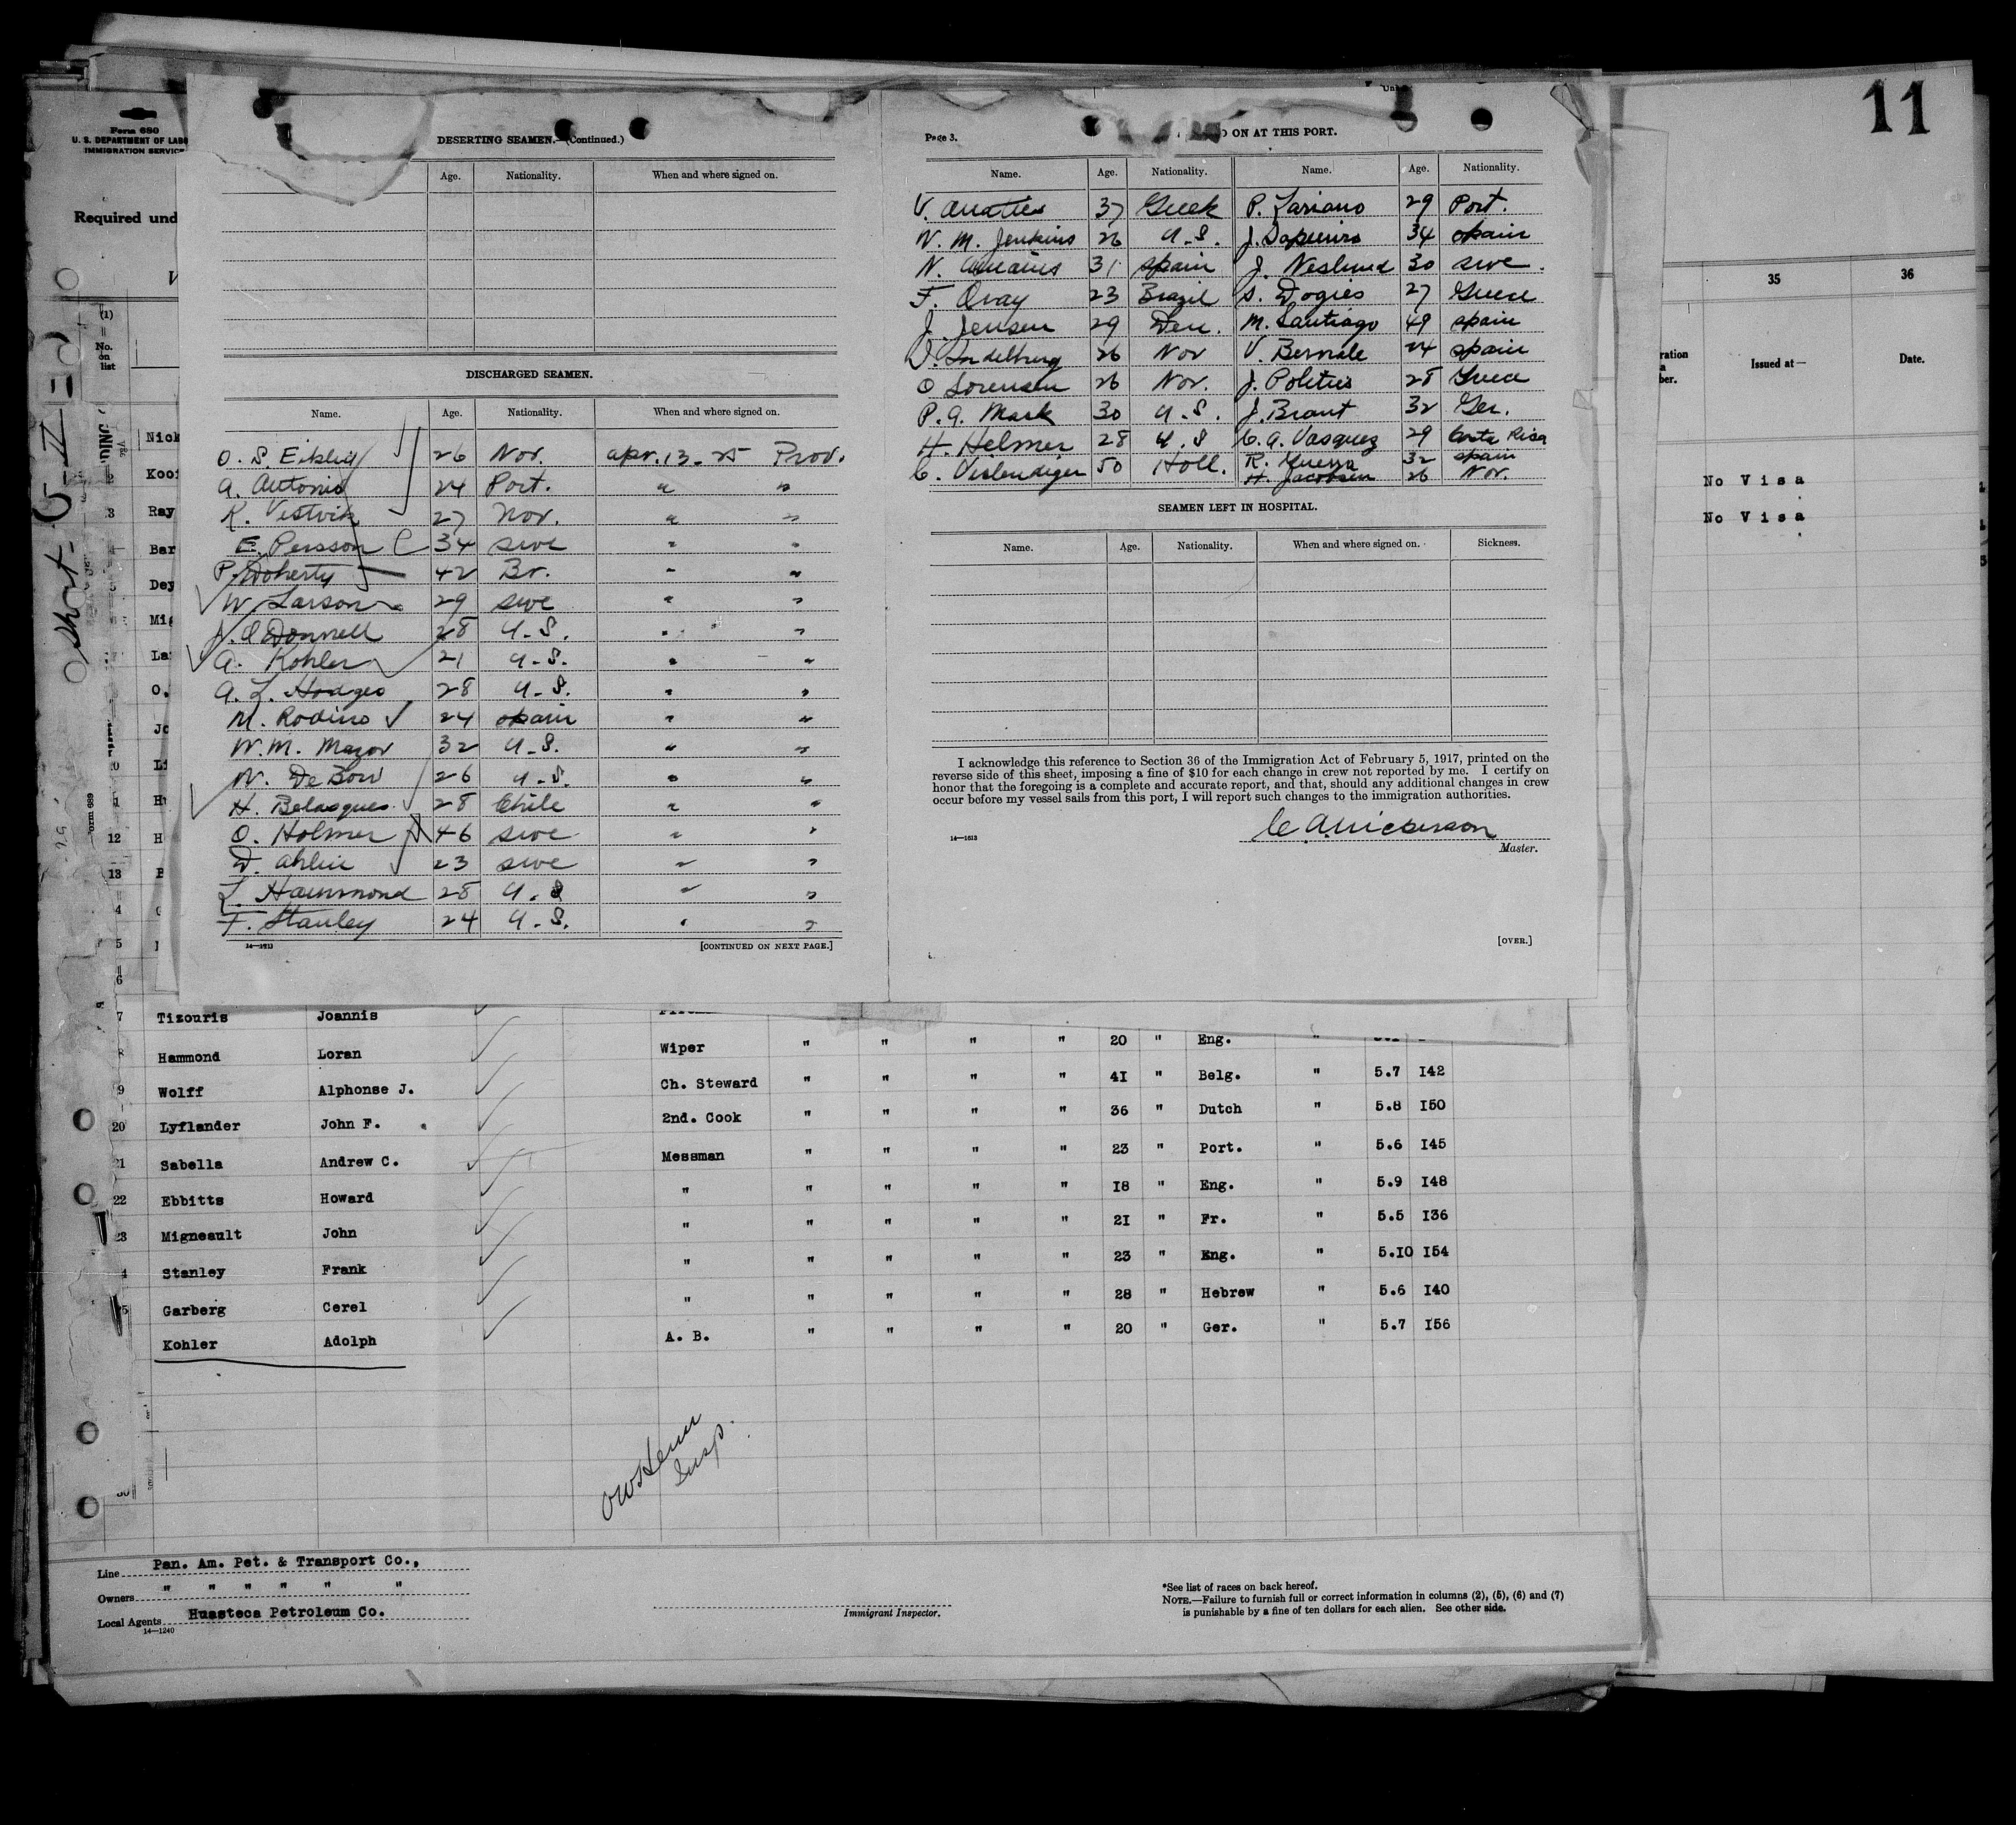 11
Form 680
U. S. DEPARTMENT OF LABO
IMMIGRATION SERVICE
Required und
(1)
No.
on
list
DESERTING SEAMEN.—(Continued.)
Age. Nationality. When and where signed on.
DISCHARGED SEAMEN.
Name. Age. Nationality. When and where signed on.
O. S. 26 Nor. Apr. 13-25 Prov.
A. Antonio 24 Port. " "
K. Vestvik 27 Nor. " "
E. Persson 34 Swe " "
P. Doherty 42 Br. " "
W. Larson 29 Swe " "
J. O'Donnell 28 U.S. " "
A. Kohler 21 U.S. " "
A. L. Hodges 28 U.S. " "
M. Rodino 24 Spain " "
W. M. Mazor 32 U.S. " "
N. De Bow 26 U.S. " "
H. Belasques 28 Chile " "
O. Holmer 46 Swe " "
D. Ahlin 23 Swe " "
L. Hammond 28 U.S. " "
F. Stanley 24 U.S. " "
[CONTINUED ON NEXT PAGE.]
Page 3.
D ON AT THIS PORT.
Name. Age. Nationality. Name. Age. Nationality.
V. 37 Greek P. Lariano 29 Port.
W. M. Jenkins 26 U.S. J. 34 Spain
N. 31 Spain J. Neslund 30 Swe.
F. Oray 23 Brazil S. Dogies 27 Greece
J. Jensen 29 Den. M. Santiago 49 Spain
26 Nor V. Bernale 24 Spain
O Sorensen 26 Nor. J. Polities 28 Greece
P. A. Mark 30 U.S. J. Brant 32 Ger.
H. Helmer 28 U.S C. A. Vasquez 29 Costa Rica
C. 50 Holl. R. Guerra 32 Spain
H. Jacobsen 26 Nor.
SEAMEN LEFT IN HOSPITAL.
Name. Age. Nationality. When and where signed on. Sickness.
I acknowledge this reference to Section 36 of the Immigration Act of February 5, 1917, printed on the
reverse side of this sheet, imposing a fine of $10 for each change in crew not reported by me. I certify on
honor that the foregoing is a complete and accurate report, and that, should any additional changes in crew
occur before my vessel sails from this port, I will report such changes to the immigration authorities.
14—1613
Master.
[OVER.]
35 36
Issued at— Date.
No Visa
No Visa
Nick
2 Koo
3 Ray
Bar
Dey
Mig
La
O.
Jo
Li
12 H
13
7 Tizouris Joannis
8 Hammond Loran Wiper " " " " 20 " Eng. "
9 Wolff Alphonse J. Ch. Steward " " " " 41 " Belg. " 5.7 142
20 Lyflander John F. 2nd. Cook " " " " 36 " Dutch " 5.8 150
21 Sabella Andrew C. Messman " " " " 23 " Port. " 5.6 145
22 Ebbitts Howard " " " " " 18 " Eng. " 5.9 148
23 Migneault John " " " " " 21 " Fr. " 5.5 136
4 Stanley Frank " " " " " 23 " Eng. " 5.10 154
25 Garberg Cerel " " " " " 28 " Hebrew " 5.6 140
Kohler Adolph A. B. " " " " 20 " Ger. " 5.7 156
Insp.
Line Pan. Am. Pet. & Transport Co.,
Owners " " " " " "
Local Agents Huasteca Petroleum Co.
14—1240
Immigrant Inspector.
*See list of races on back hereof.
NOTE.—Failure to furnish full or correct information in columns (2), (5), (6) and (7)
is punishable by a fine of ten dollars for each alien. See other side.